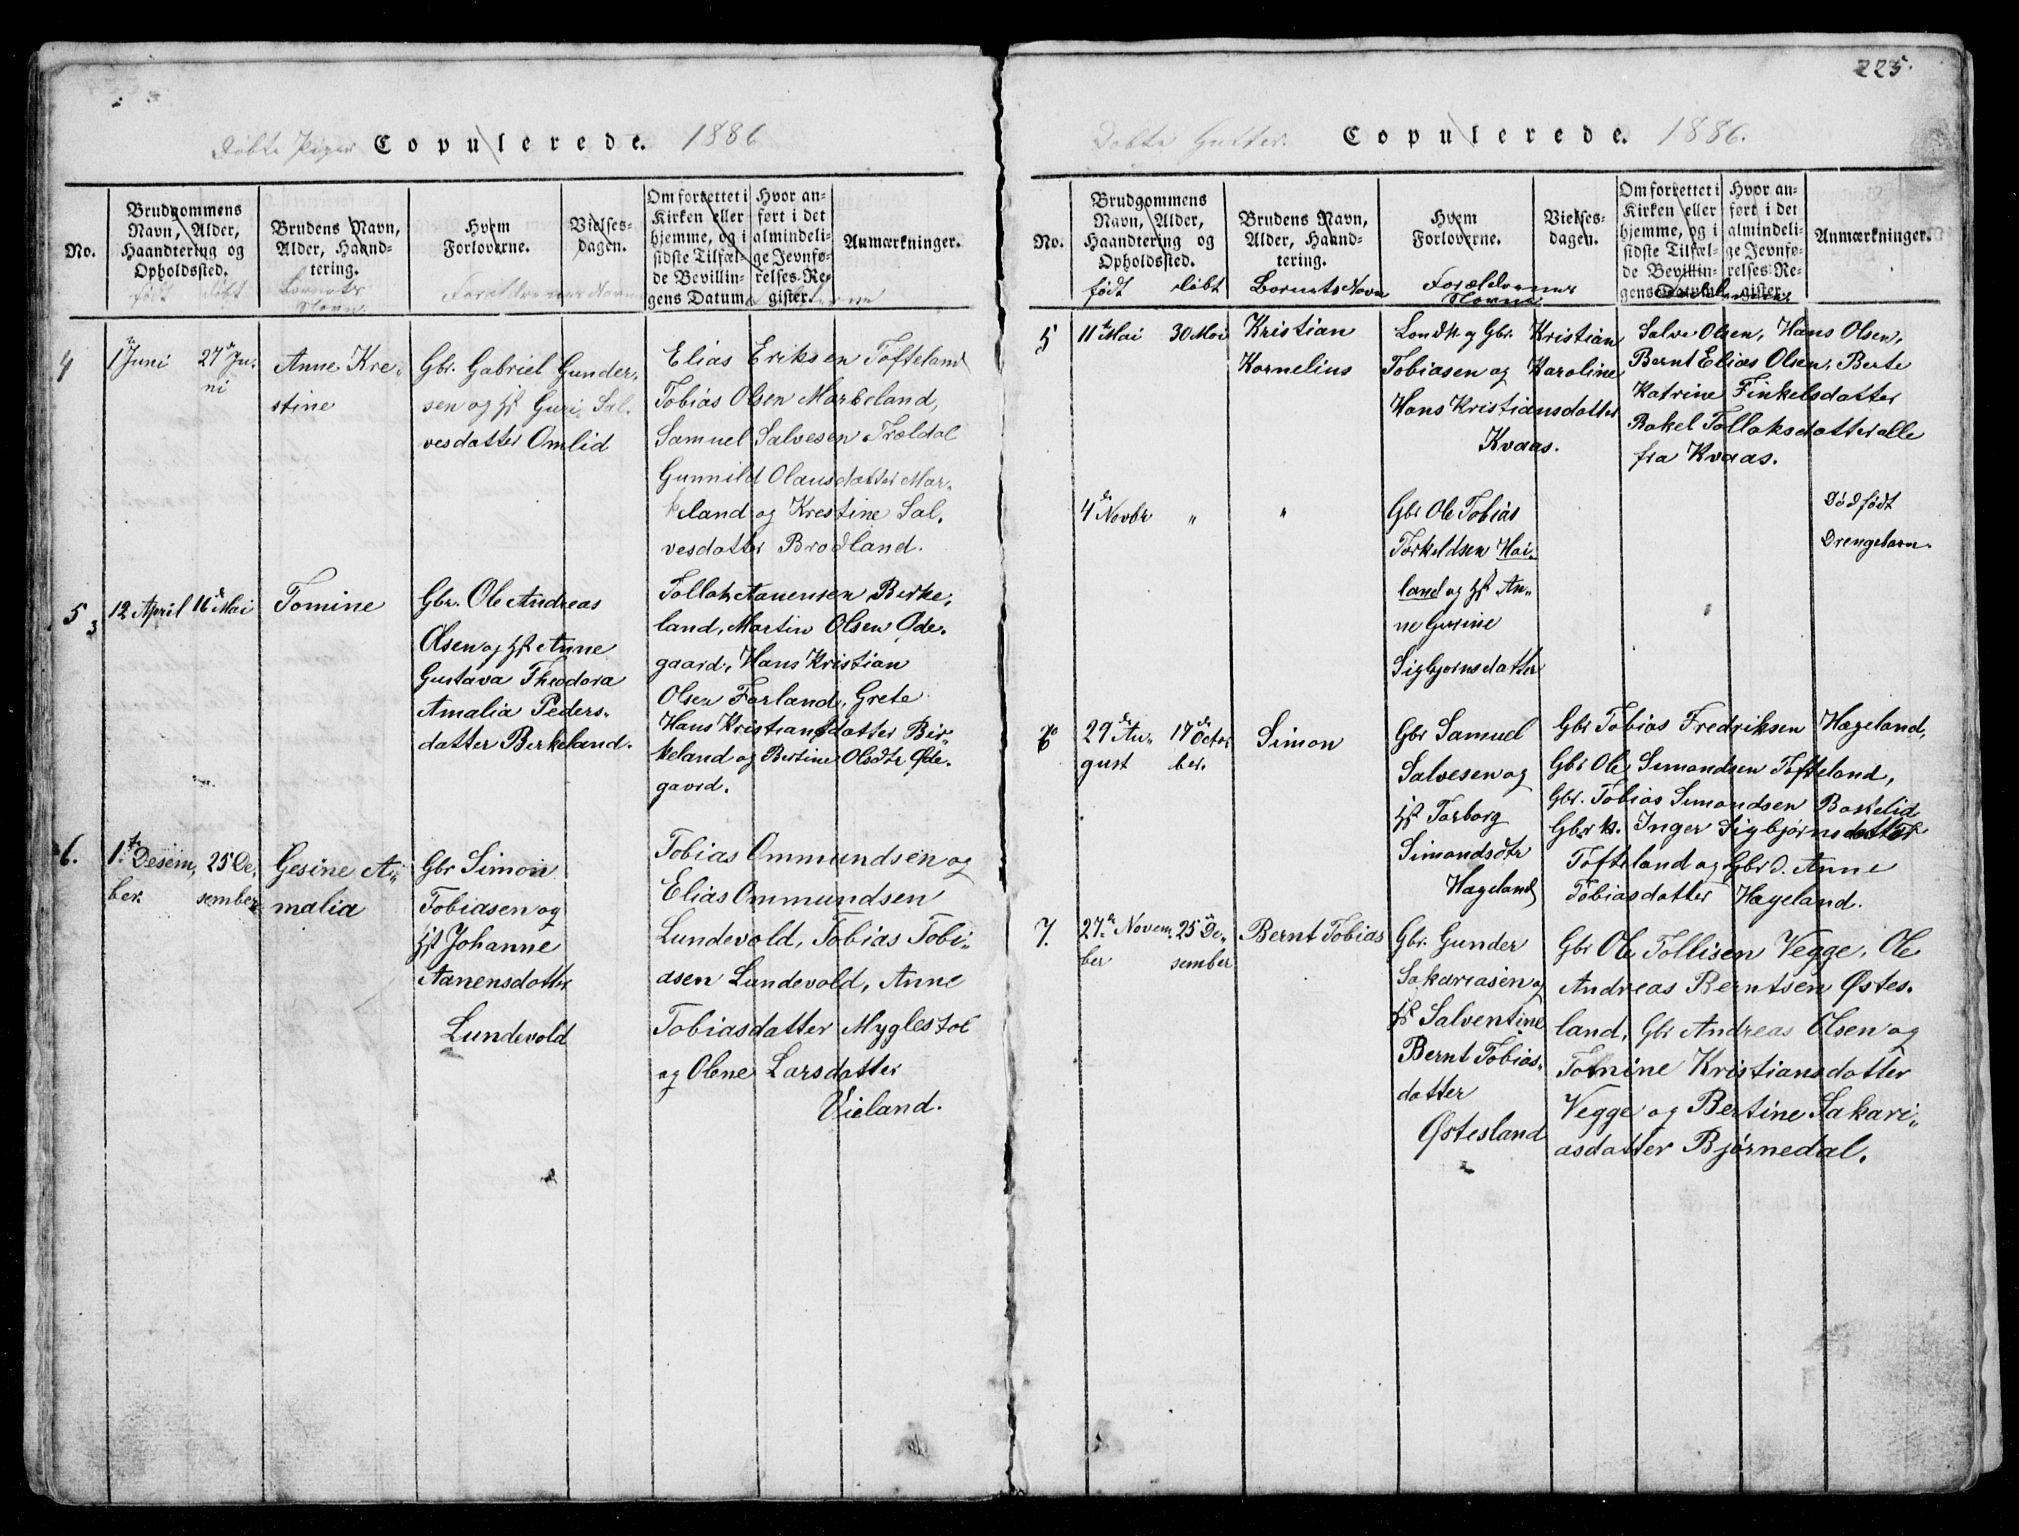 Døbte Piger Copulerede. 1886
No.
Brudgommens
Navn, Alder,
Haandtering og
Opholdssted.
født døbt
Brudens Navn,
Alder, Haand-
tering.
Barnets
Navn
Hvem
Forloverne.
Forældrenes Navne
Vielses-
dagen.
Om forrettet i
Kirken eller
hjemme, og i
sidste Tilfæl-
de Bevillin-
gens Datum.
Hvor an-
ført i det
almindeli-
ge Jevnfø-
relses-Re-
gister.
Anmærkninger.
4
1 Juni
27de Ju-
ni
Anne Kre-
stine
Gbr. Gabriel Gunder-
sen og Hst Guri Sal-
vesdatter Omlid
Elias Eriksen Tofteland
Tobias Olsen Marbeland,
Samuel Salvesen Trældal
Gunnild Olausdatter Mar-
keland og Krestine Sal-
vesdatter Brødland.
5
3
12 April
16de Mai
Tomine
Gbr. Ole Andreas
Olsen og Hst Anne
Gustava Theodora
Amalia Peders-
datter Berkeland.
Tollak Aanensen Birke-
land, Martin Olsen Øde-
gaard, Hans Kristian
Olsen Farland, Grete
Hans Kristiansdatter Bir-
keland og Bertine Olsdtr Øde-
gaard.
6.
1te Desem-
ber.
25 De-
sember
Gesine A-
malia
Gbr Simon
Tobiasen og
Hst Johanne
Aanensdatter
Lundevold
Tobias Ommundsen og
Elias Ommundsen
Lundevold, Tobias Tobi-
asen Lundevold, Anne
Tobiasdatter Myglestøl
og Olene Larsdatter
Vieland.
225.
Døbte Gutter. Copulerede. 1886.
No.
Brudgommens
Navn, Alder,
Haandtering og
Opholdssted.
født døbt
Brudens Navn,
Alder, Haand-
tering.
Barnets Navn
Hvem
Forloverne.
Forældrenes
Navne
Vielses-
dagen.
Om forrettet i
Kirken eller
hjemme, og i
sidste Tilfæl-
de Bevillin-
gens Datum.
Hvor an-
ført i det
almindeli-
ge Jevnfø-
relses-Re-
gister.
Anmærkninger.
5
11te Mai
30 Mai
Kristian
Kornelius
Landh og Gbr. Kristian
Tobiasen og Karoline
Hans Kristiansdatter
Kvaas.
Salve Olsen, Hans Olsen,
Bernt Elias Olsen, Berte
Katrine Finkelsdatter
Rakel Tollaksdatter alle
fra Kvaas.
4de Novbr
"
"
Gbr Ole Tobias
Torkeldsen Hai-
land og Hst An-
ne Gurine
Sigbjørnsdatter
Dødfødt
Drengebarn.
6
29de Au-
gust
17de Octo-
ber.
Simon
Gbr Samuel
Salvesen og
Hst Torborg
Simondsdtr
Hægeland
Gbr Tobias Fredriksen Hægeland,
Gbr Ole Simondsen Tofteland,
Gbr. Tobias Simondsen Baskelid
Gbr k. Inger Sigbjørnsdatter
Tofteland og Gbr d. Anne
Tobiasdatter Hægeland.
7.
27de Novem-
ber
25de De-
sember
Bernt Tobias
Gbr. Gunder
Sakariasen og
Hst Salventine
Bernt Tobias-
datter
Østesland
Gbr Ole Tollisen Vegge, Ole
Andreas Berntsen Østes-
land, Gbr Andreas Olsen og
Tomine Kristiansdatter
Vegge og Bertine Sakari-
asdatter Bjørnedal.